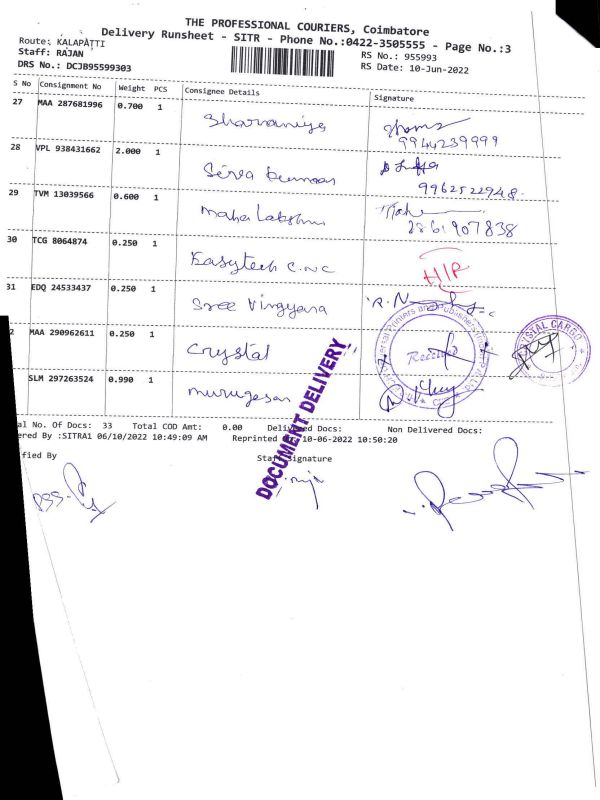 THE PROFESSIONAL COURIERS, Coimbatore
Delivery Runsheet - SITR - Phone No.:0422-3505555 - Page No.:3
Route: KALAPATTI
Staff: RAJAN
DRS No.: DCJB95599303
RS No.: 955993
RS Date: 10-Jun-2022
S No Consignment No Weight PCS Consignee Details Signature
27 MAA 287681996 0.700 1 Sharaniya
9944239999
28 VPL 938431662 2.000 1 Siva Kumar
9962522948
29 TVM 13039566 0.600 1 Maha Lakshmi
2861907838
30 TCG 8064874 0.250 1 Easytech C.N.C H/P
31 EDQ 24533437 0.250 1 Sree Vingyana
2 MAA 290962611 0.250 1 Crystal Received
STAL CARGO
SLM 297263524 0.990 1 murugesan
DOCUMENT DELIVERY
al No. Of Docs: 33 Total COD Amt: 0.00 Delivered Docs: Non Delivered Docs:
ered By :SITRA1 06/10/2022 10:49:09 AM Reprinted 10-06-2022 10:50:20
ified By Staff Signature